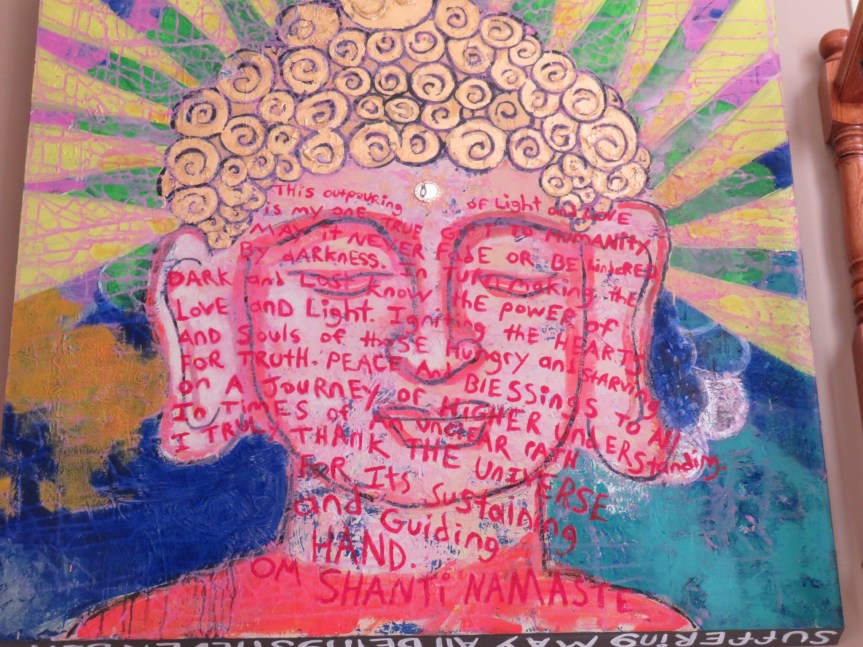 THis outpouring of Light and LOVE
is my one TRUE GIFT to HUMANITY
MAY it NEVER FADE OR BE hindered
BY dARKNESS. In TURN making the
DARK and Lost know the POWER of
LOVE and Light. Igniting the HEARTS
AND Souls of those Hungry and STARVING
FOR TRUTH. PEACE And BlEssings TO All
on A JOURNEY of HIGHER UndERStanding.
In TIMES of An UNCLEAR PATH
I TRULY THANK THE UNIVERSE
FOR Its Sustaining
and Guiding
HAND.
OM SHANTi NAMASTE
SUFFERing MAY All BEings